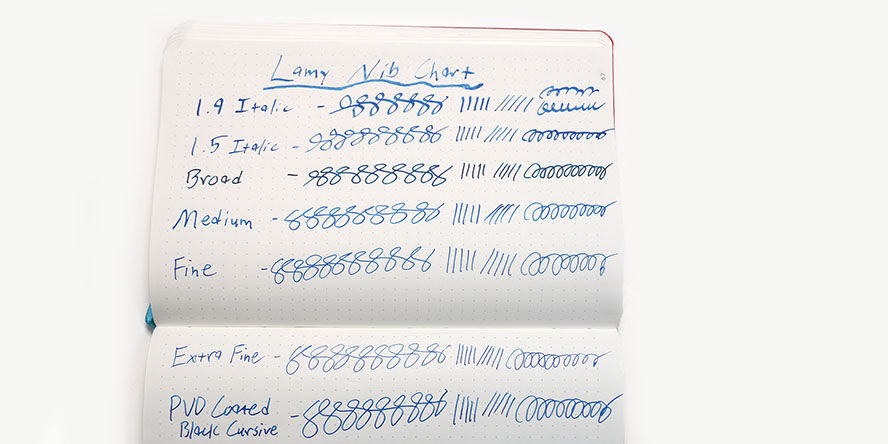 Lamy Nib Chart
1.9 Italic -
1.5 Italic -
Broad -
Medium -
Fine -
Extra Fine -
PVD Coated -
Black Cursive